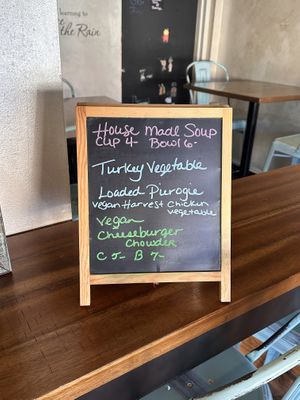 learning to
the Rain
House Made Soup
Cup 4- Bowl 6-
Turkey Vegetable
Loaded Pierogie
Vegan Harvest Chicken
Vegetable
Vegan
Cheeseburger
Chowder
C 5- B 7-